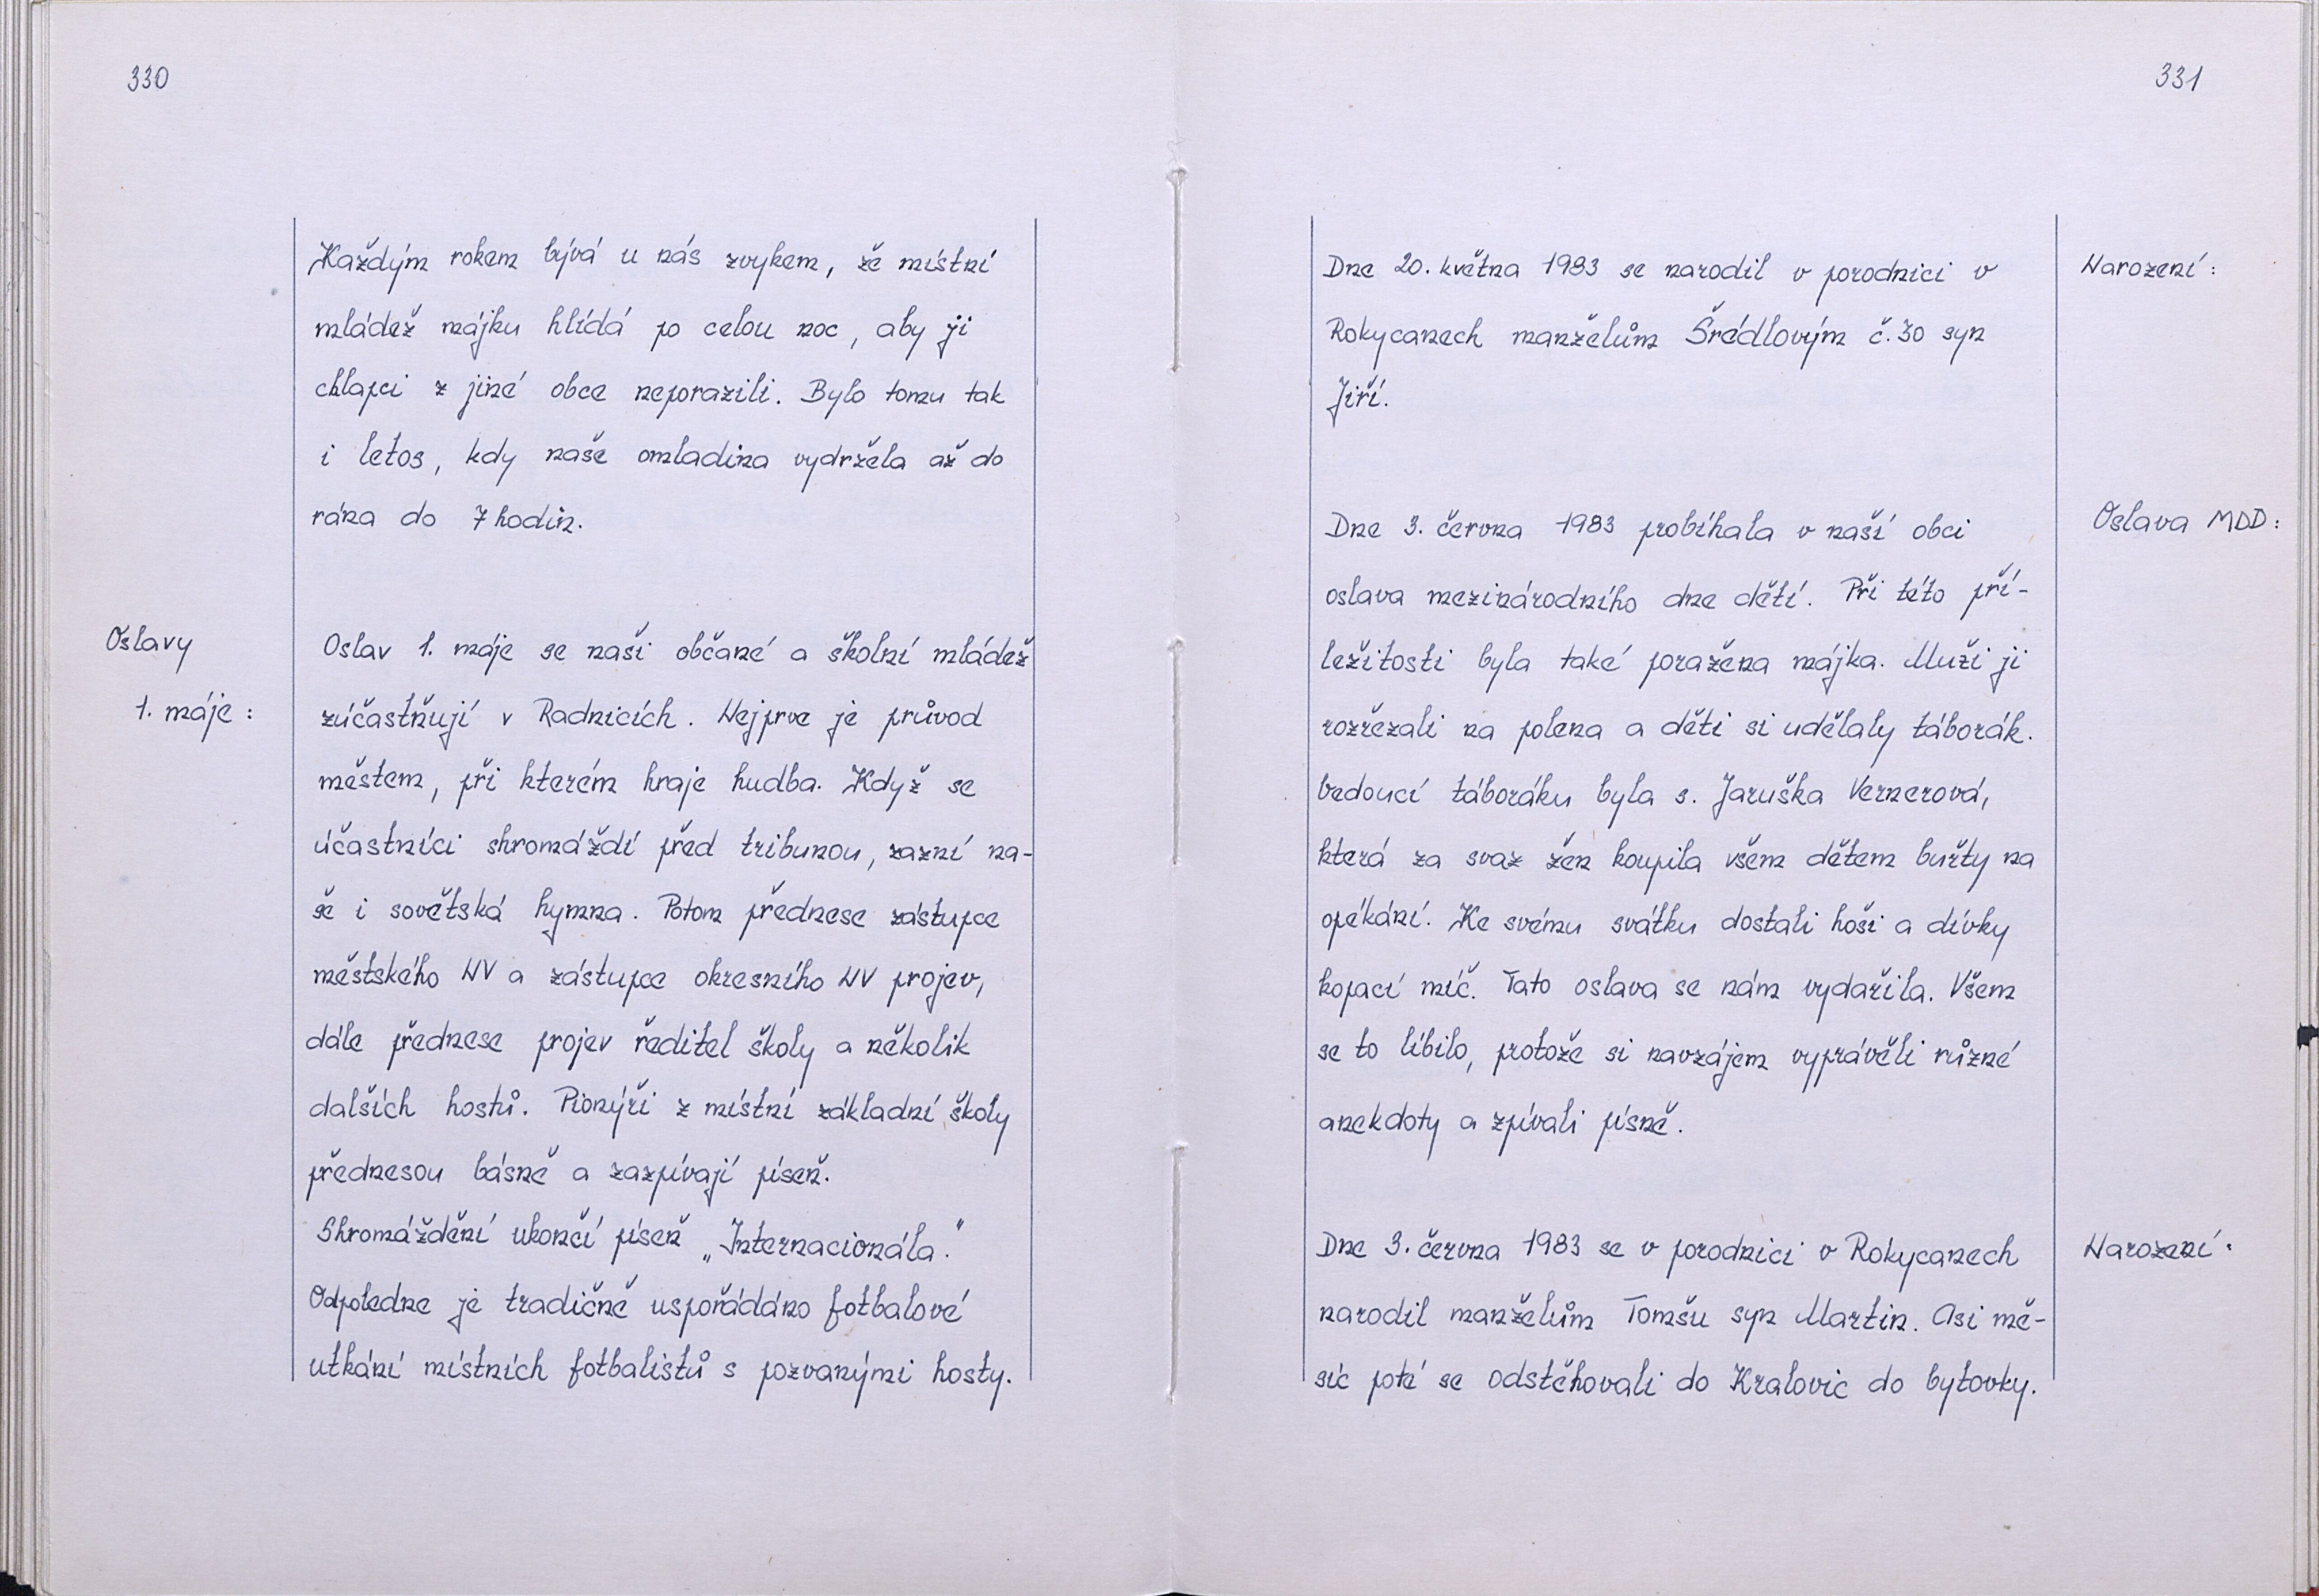 330
Každým rokem bývá u nás zvykem, že místní
mládež májku hlídá po celou noc, aby ji
chlapci z jiné obce neporazili. Bylo tomu tak
i letos, kdy naše omladina vydržela až do
rána do 7 hodin.
Oslavy
1. máje:
Oslav 1. máje se naši občané a školní mládež
zúčastňují v Radnicích. Nejprve je průvod
městem, při kterém hraje hudba. Když se
účastníci shromáždí před tribunou, zazní na-
še i sovětská hymna. Potom přednese zástupce
městského NV a zástupce okresního NV projev,
dále přednese projev ředitel školy a několik
dalších hostů. Pionýři z místní základní školy
přednesou básně a zazpívají píseň.
Shromáždění ukončí píseň „Internacionála."
Odpoledne je tradičně uspořádáno fotbalové
utkání místních fotbalistů s pozvanými hosty.
331
Narození:
Dne 20. května 1983 se narodil v porodnici v
Rokycanech manželům Šrédlovým č. 30 syn
Jiří.
Oslava MDD:
Dne 3. června 1983 probíhala v naší obci
oslava mezinárodního dne dětí. Při této pří-
ležitosti byla také poražena májka. Muži ji
rozřezali na polena a děti si udělaly táborák.
Vedoucí táboráku byla s. Jaruška Vernerová,
která za svaz žen koupila všem dětem buřty na
opékání. Ke svému svátku dostali hoši a dívky
kopací míč. Tato oslava se nám vydařila. Všem
se to líbilo, protože si navzájem vyprávěli různé
anekdoty a zpívali písně.
Narození:
Dne 3. června 1983 se v porodnici v Rokycanech
narodil manželům Tomšu syn Martin. Asi mě-
síc poté se odstěhovali do Kralovic do bytovky.